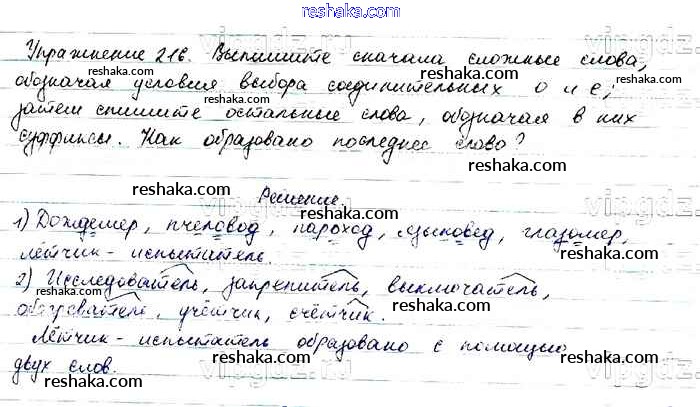 reshaka.com
Упражнение 216. Выпишите сначала сложные слова,
обозначая условия выбора соединительных о и е;
затем спишите остальные слова, обозначая в них
суффиксы. Как образовано последнее слово?
reshaka.com
reshaka.com
reshaka.com
reshaka.com
reshaka.com
Решение.
vipgdz.ru
1) Дождемер, пчеловод, пароход, языковед, глазомер,
reshaka.com
reshaka.com
лётчик-испытатель.
reshaka.com
2) Исследователь, закрепитель, выключатель,
reshaka.com
reshaka.com
обогреватель, учётчик, счётчик.
reshaka.com
Лётчик-испытатель образовано с помощью
reshaka.com
двух слов.
reshaka.com